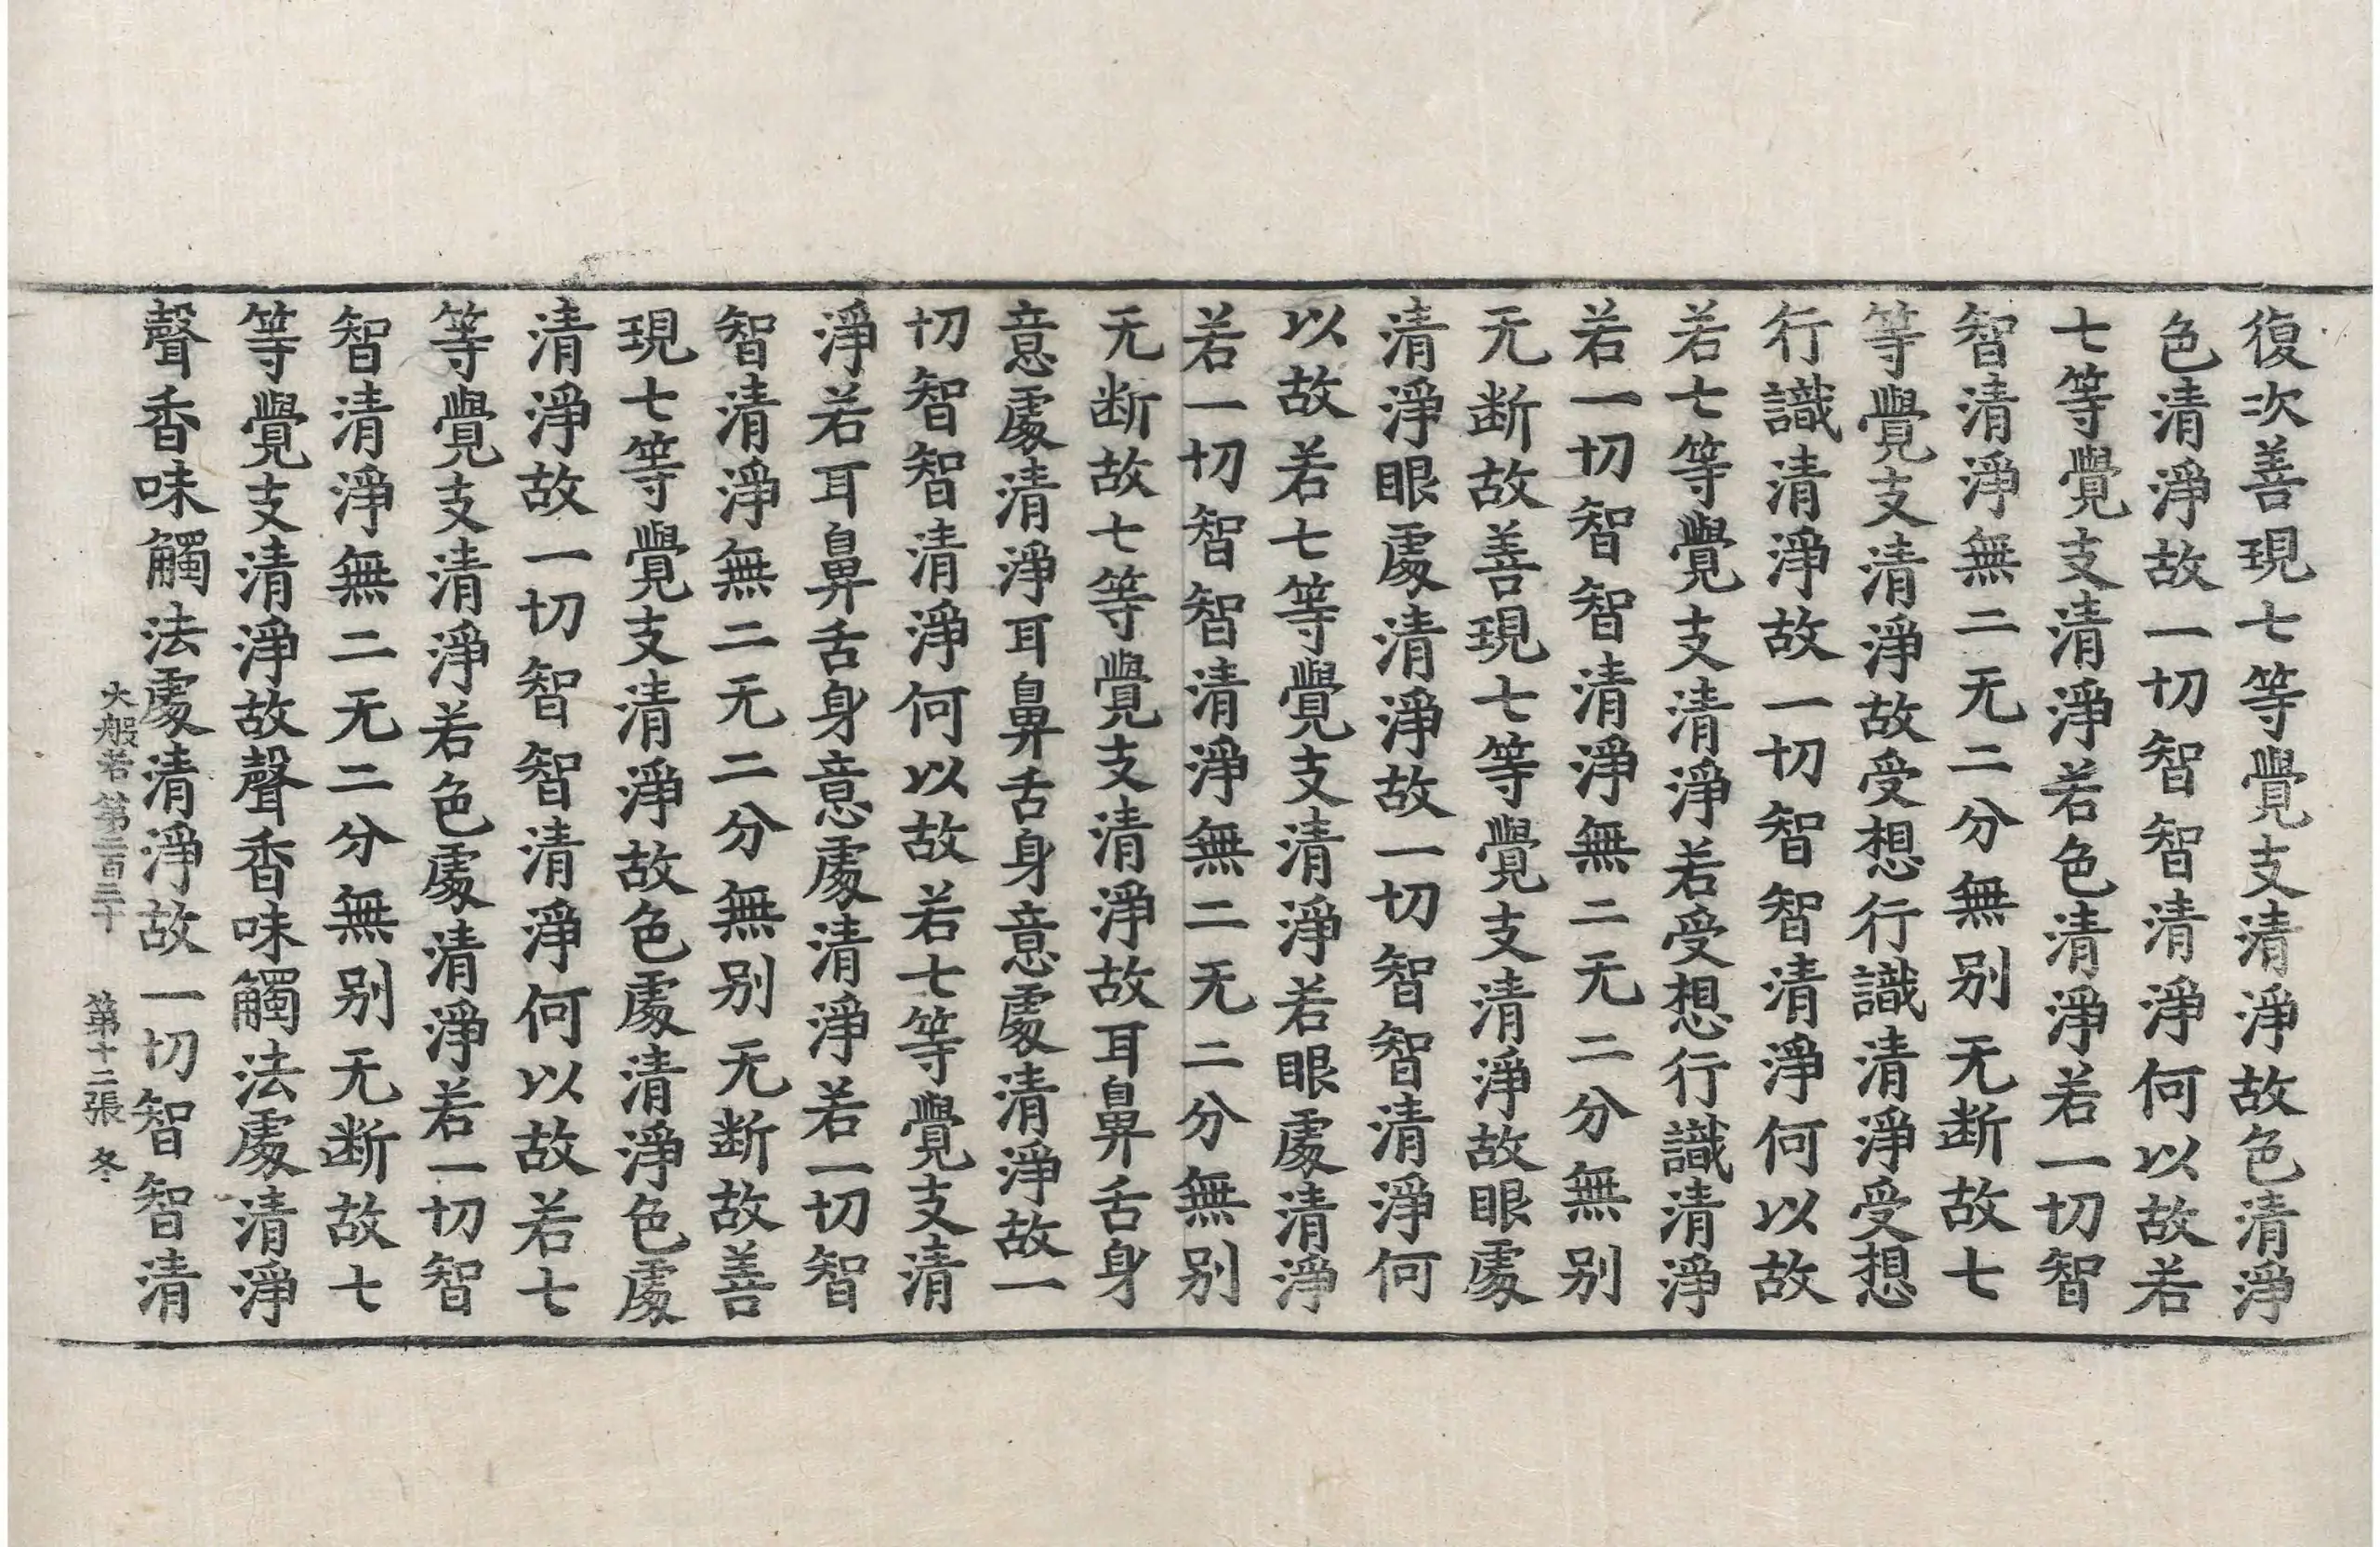 復次善現七等覺支清淨故色清淨
色清淨故一切智智清淨何以故若
七等覺支清淨若色清淨若一切智
智清淨無二无二分無別无断故七
等覺支清淨故受想行識清淨受想
行識清淨故一切智智清淨何以故
若七等覺支清淨若受想行識清淨
若一切智智清淨無二无二分無別
无断故善現七等覺支清淨故眼處
清淨眼處清淨故一切智智清淨何
以故若七等覺支清淨若眼處清淨
若一切智智清淨無二无二分無別
无断故七等覺支清淨故耳鼻舌身
意處清淨耳鼻舌身意處清淨故一
切智智清淨何以故若七等覺支清
淨若耳鼻舌身意處清淨若一切智
智清淨無二无二分無別无断故善
現七等覺支清淨故色處清淨色處
清淨故一切智智清淨何以故若七
等覺支清淨若色處清淨若一切智
智清淨無二无二分無別无断故七
等覺支清淨故聲香味觸法處清淨
聲香味觸法處清淨故一切智智清
大般若第二百三十 第十二張 冬